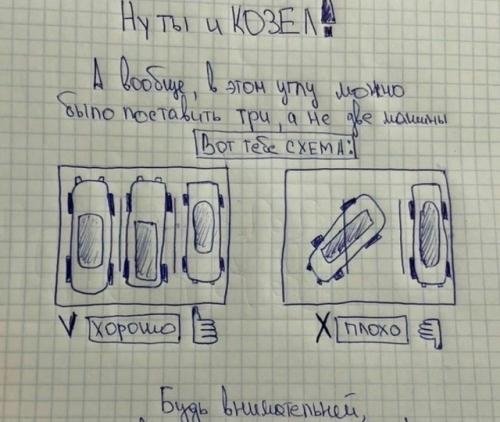 Ну ты и КОЗЕЛ!
А вообще, в этом углу можно
было поставить три, а не две машины
Вот тебе СХЕМА:
V хорошо
X плохо
Будь внимательней,